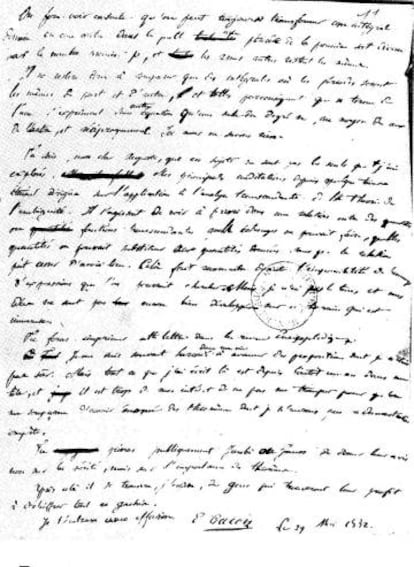 On fait voir ensuite qu'on peut toujours transformer une intégrale
donnée en une autre dans laquelle une période de la première soit divisée
par le nombre premier p, et les autres restent les mêmes.
Il ne restera donc à comparer que des intégrales où les périodes seront
les mêmes de part et d'autre, et telles par conséquent que n termes de
l'une s'expriment sans autre équation qu'une seule du degré n, au moyen de ceux
de l'autre, et réciproquement. Ici nous ne savons rien.
Tu sais, mon cher Auguste, que ces sujets ne sont pas les seuls que j'aie
explorés. Mes principales méditations depuis quelque temps
étaient dirigées sur l'application à l'analyse transcendante de la théorie de
l'ambiguité. Il s'agissait de voir a priori dans une relation entre des quantités
ou fonctions transcendantes quels échanges on pouvait faire, quelles
quantités on pouvait substituer aux quantités données sans que la relation
put cesser d'avoir lieu. Cela fait reconnaitre l'impossibilité de
d'expressions que l'on pourrait chercher. Mais je n'ai pas le temps et mes
idées ne sont pas encore bien développées sur ce terrain qui est
immense.
Tu feras imprimer cette lettre dans la revue encyclopédique.
Je me suis souvent hasardé dans ma vie à avancer des propositions dont je n'étais
pas sûr. Mais tout ce que j'ai écrit là est depuis bientôt un an dans ma
tête, et il est trop de mon intérêt de ne pas me tromper pour qu'on
me soupçonne d'avoir énoncé des théorèmes dont je n'aurais pas la démonstration
complète.
Tu prieras publiquement Jacobi ou Gauss de donner leur avis
non sur la vérité, mais sur l'importance des théorèmes.
Après cela il se trouvera, j'espère, des gens qui trouveront leur profit
à déchiffrer tout ce gachis.
Je t'embrasse avec effusion. E Galois Le 29 Mai 1832.